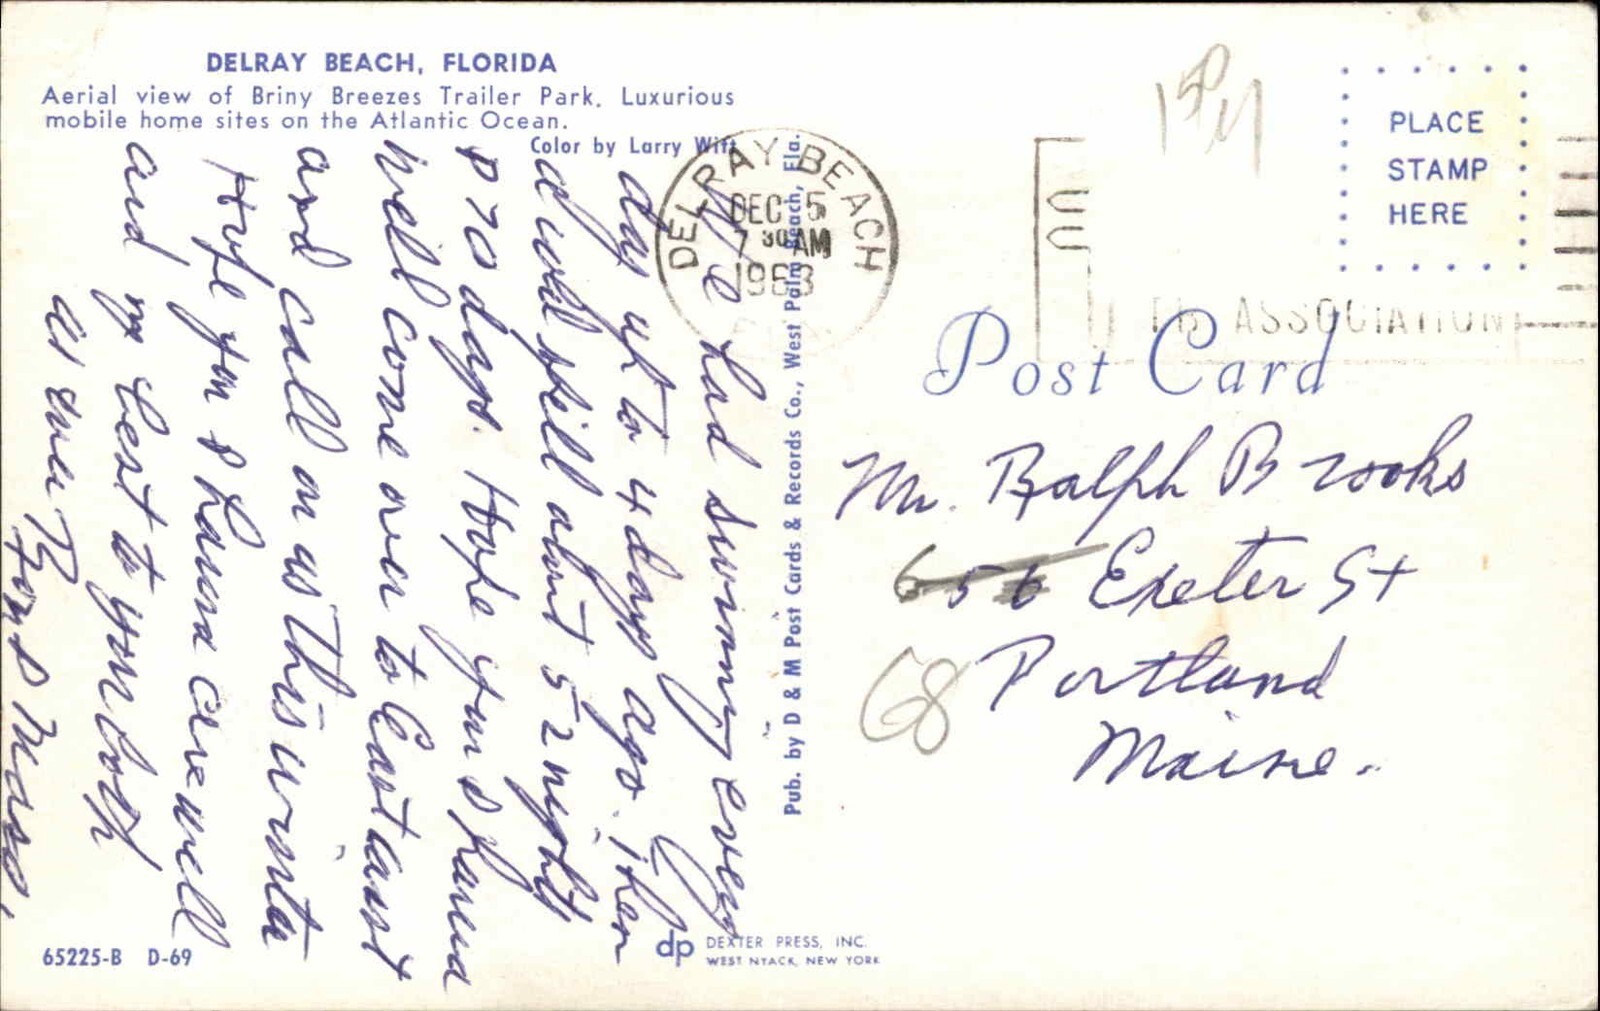 DELRAY BEACH, FLORIDA
Aerial view of Briny Breezes Trailer Park. Luxurious
mobile home sites on the Atlantic Ocean.
Color by Larry Witt
We had sunny every
day up to 4 days ago. Then
a cold spell about 52 nights
& 70 days. Hope you &
will come over to East coast
and call on us this winter
Hope you & are well
and my best to you both
as ever Tom &
Pub. by D & M Post Cards & Records Co., West Palm Beach, Fla.
65225-B D-69
dp DEXTER PRESS, INC.
WEST NYACK, NEW YORK
DELRAY BEACH
DEC 5
7 30 AM
1963
ASSOCIATION
PLACE
STAMP
HERE
Post Card
Mr. Ralph Brooks
656 Exeter St
68 Portland
Maine.